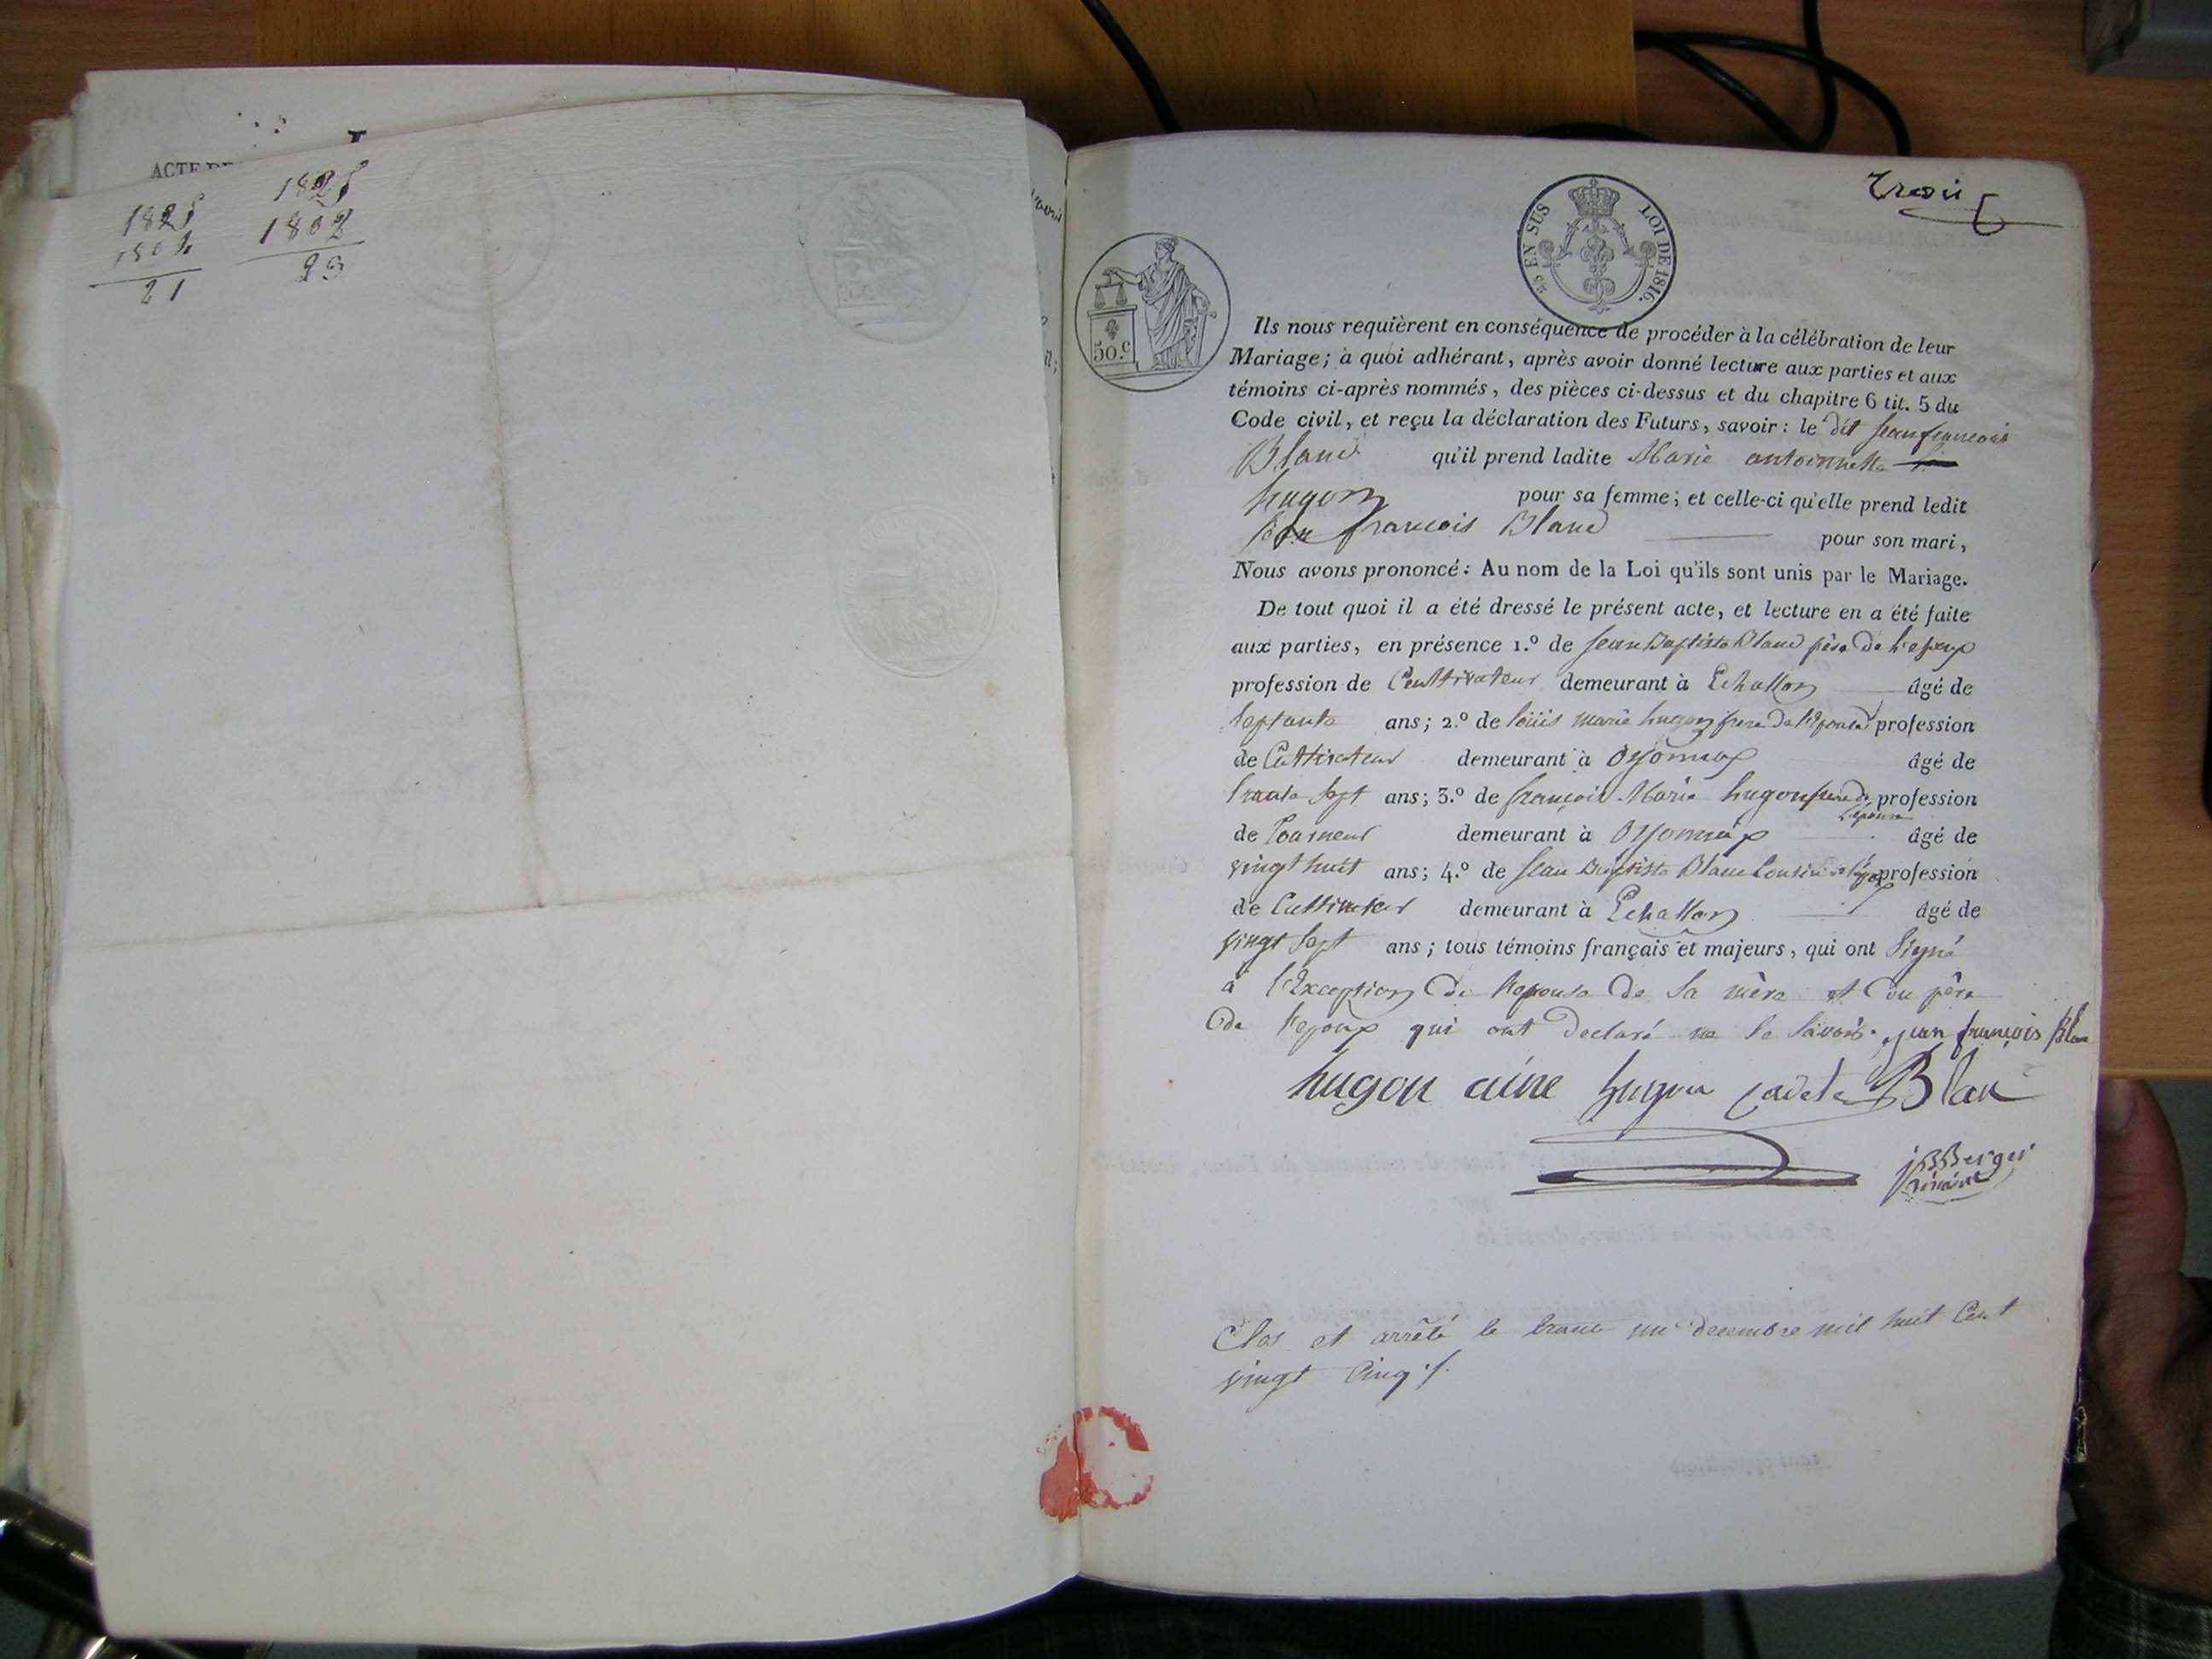 ACTE DE
1825
1804
21
1825
1802
23
Trois
25 EN SUS LOI DE 1816.
50.c
Ils nous requièrent en conséquence de procéder à la célébration de leur
Mariage; à quoi adhérant, après avoir donné lecture aux parties et aux
témoins ci-après nommés, des pièces ci-dessus et du chapitre 6 tit. 5 du
Code civil, et reçu la déclaration des Futurs, savoir: le dit jean françois
Blanc qu'il prend ladite Marie antoinette
hugon pour sa femme; et celle-ci qu'elle prend ledit
jean françois Blanc pour son mari,
Nous avons prononcé: Au nom de la Loi qu'ils sont unis par le Mariage.
De tout quoi il a été dressé le présent acte, et lecture en a été faite
aux parties, en présence 1.º de jean Baptiste Blanc père de l'epoux
profession de Cultivateur demeurant à Echallon âgé de
septante ans; 2.º de loüis marie hugon frere de l'Epouse profession
de Cultivateur demeurant à Oyonnax âgé de
trente sept ans; 3.º de françois Marie hugon frere de l'épouse profession
de Tourneur demeurant à Oyonnax âgé de
vingt huit ans; 4.º de jean Baptiste Blanc Cousin de l'époux profession
de Cultivateur demeurant à Echallon âgé de
vingt sept ans; tous témoins français et majeurs, qui ont signé
à l'Exception de l'epouse de sa mère et du père
de l'epoux qui ont declaré ne le savoir. jean françois Blanc
hugon ainé hugon cadet Blan
jBBerger
Clos et arrêté le trente un decembre mil huit Cent
vingt Cinq ./.